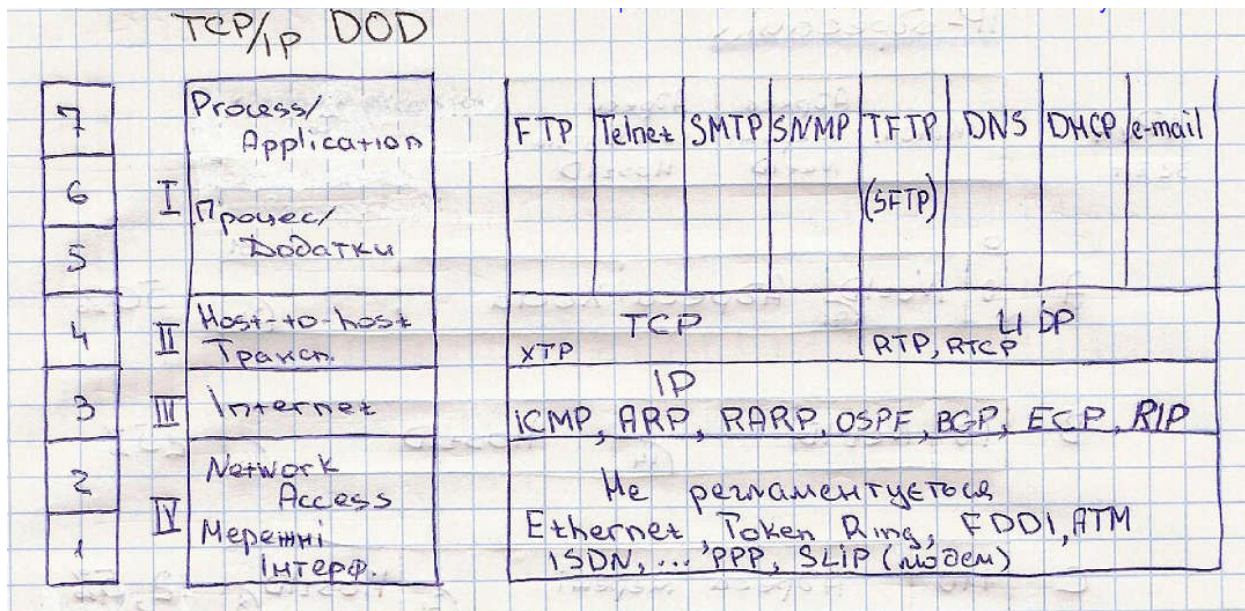 TCP/IP DOD
7
6
5
4
3
2
1
I
II
III
IV
Process/
Application
Процес/
Додатки
Host-to-host
Трансп.
Internet
Network
Access
Мережні
Інтерф.
FTP Telnet SMTP SNMP TFTP DNS DHCP e-mail
(SFTP)
TCP UDP
XTP RTP, RTCP
IP
ICMP, ARP, RARP, OSPF, BGP, ECP, RIP
Не регламентується
Ethernet, Token Ring, FDDI, ATM
ISDN, ... PPP, SLIP (модем)